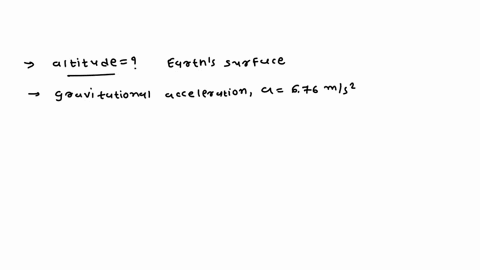 → altitude = ? Earth's surface
→ gravitational acceleration, a = 6.76 m/s²